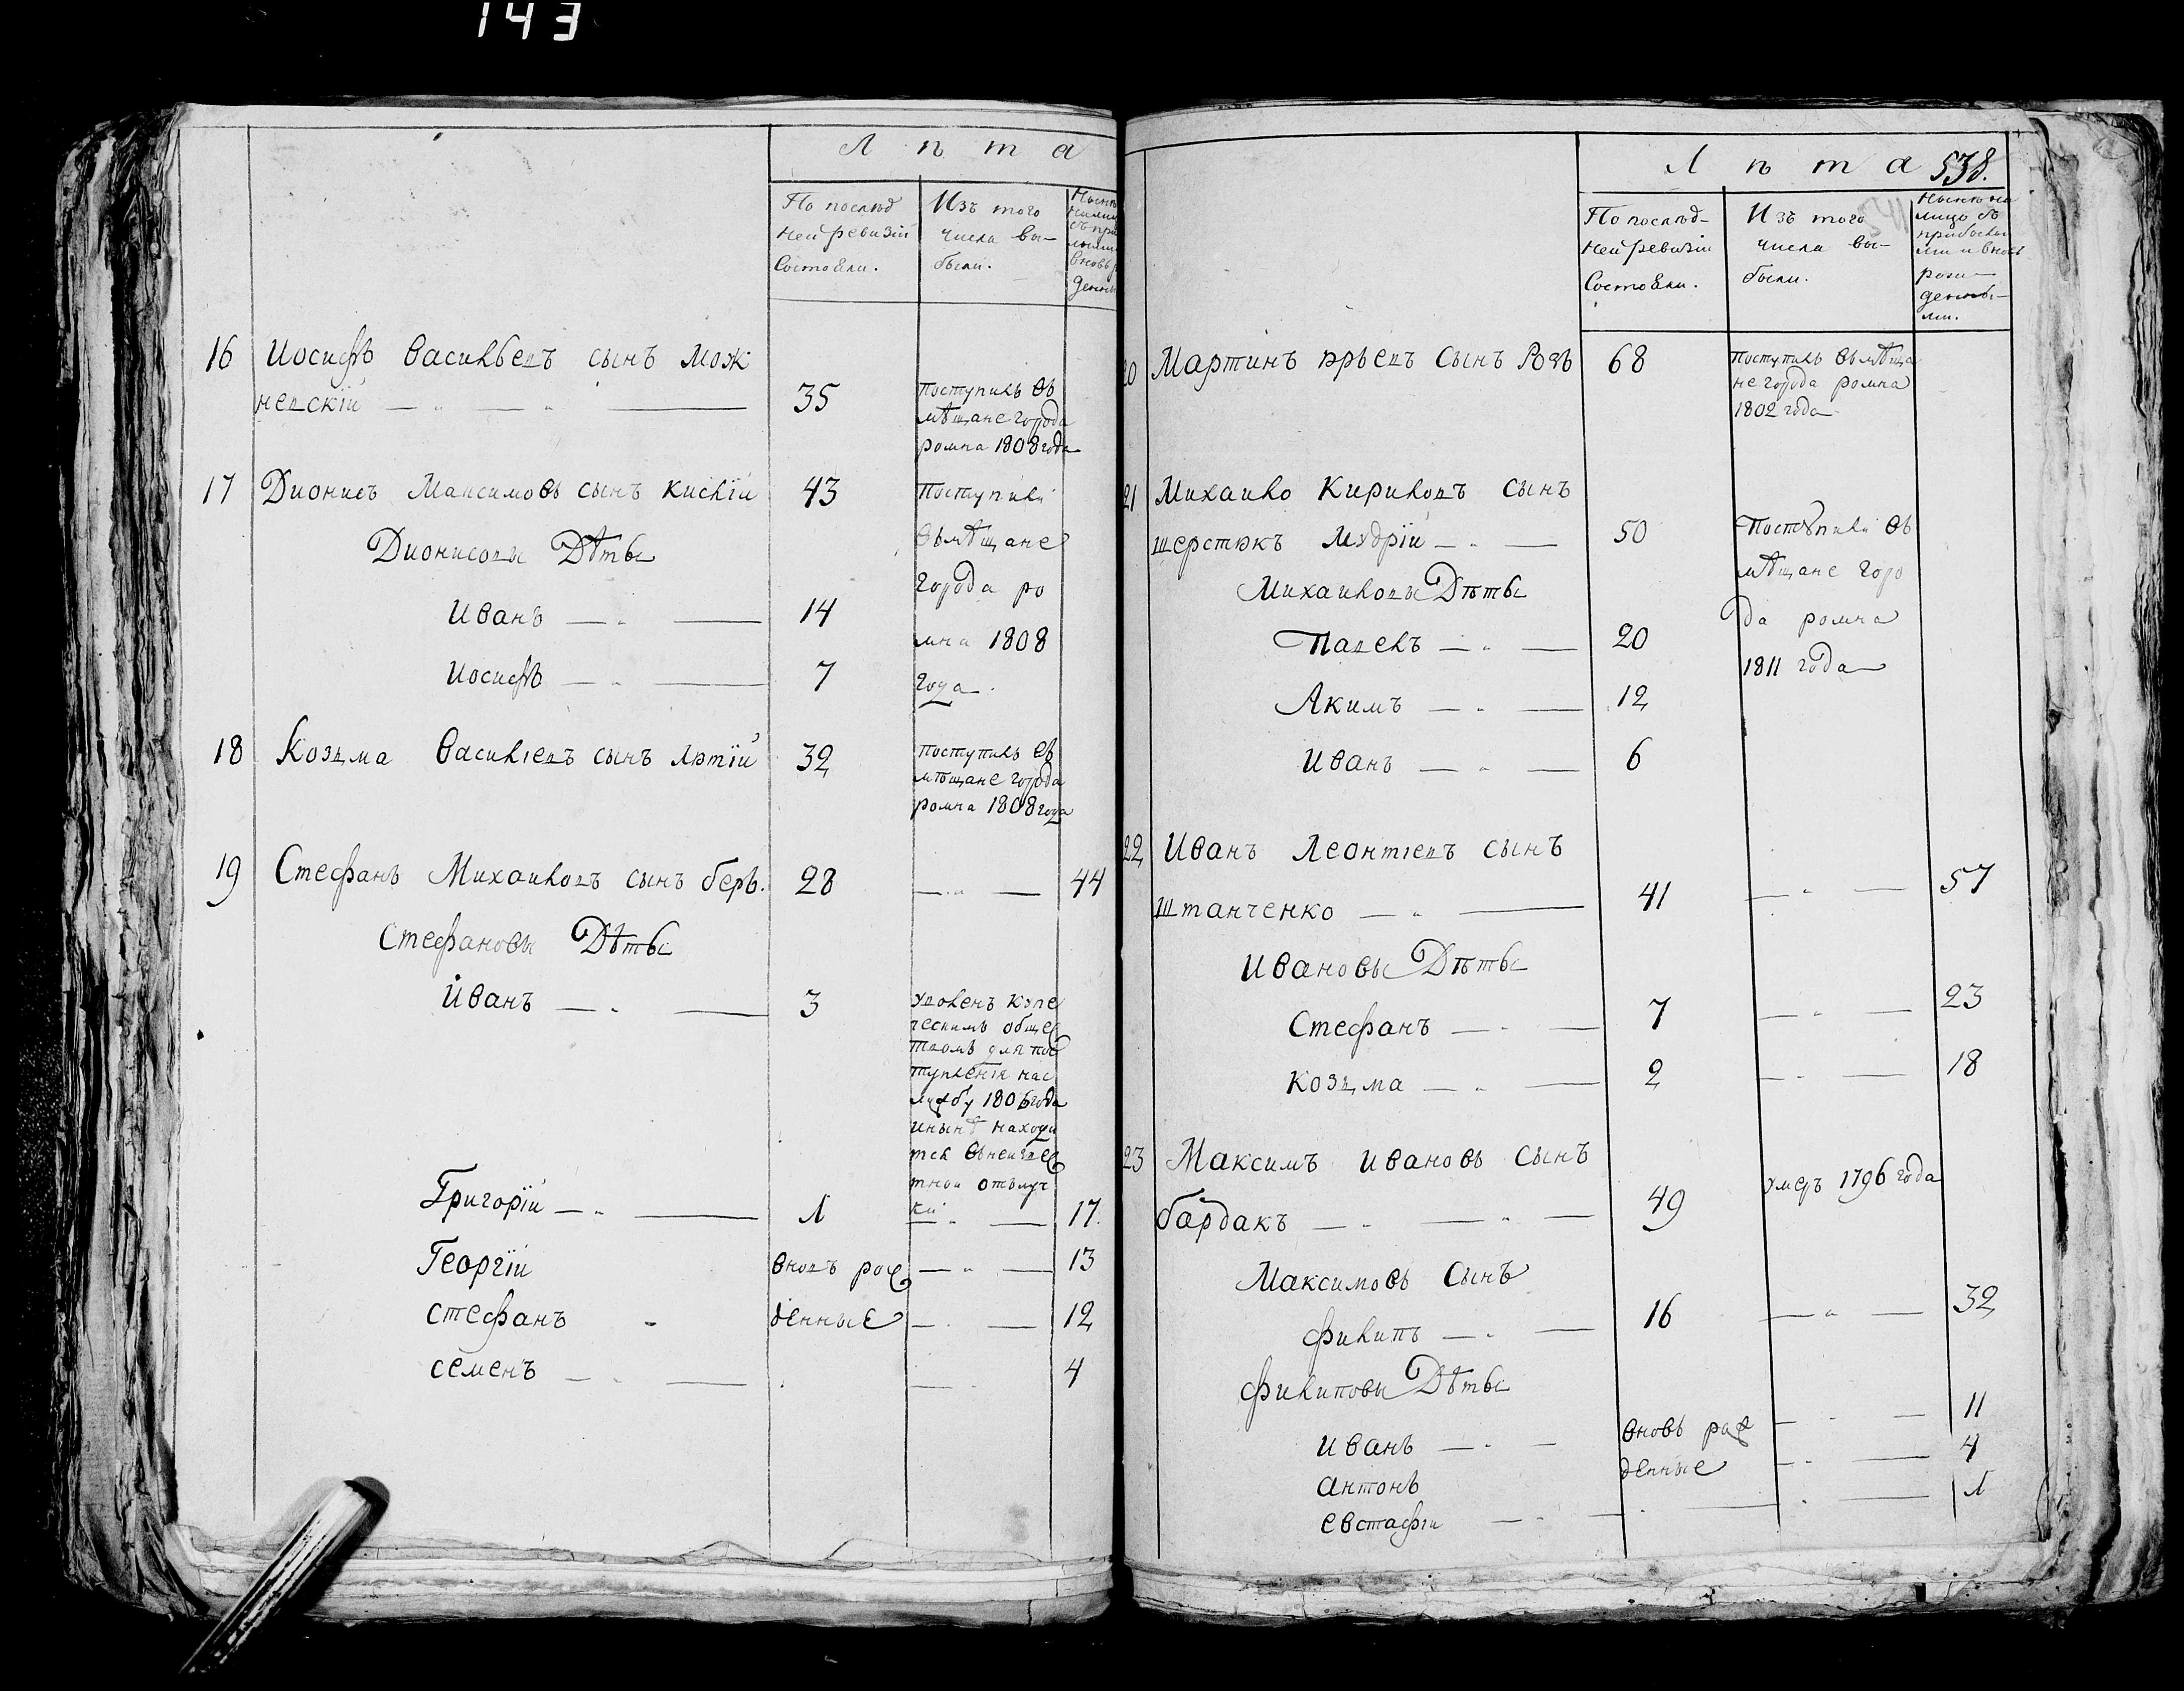 143
Лѣта
По послѣд
ней ревизіи
состояли.
Изъ того
числа вы-
были.
16 Иосифъ Васильевъ сынъ Мож
невскій 35
поступилъ въ
мѣщане города
ромна 1808 года
17 Дионисъ Максимовъ сынъ кислій 43
Поступили
въ мѣщане
города ро
мна 1808
года.
Дионисовы Дѣты
Иванъ 14
Иосифъ 7
18 Козма Василіевъ сынъ лютій 32
поступилъ въ
мѣщане города
ромна 1808 года
19 Стефанъ Михаиловъ сынъ беръ. 28 44
Стефановы Дѣты
Иванъ 3
уволенъ купе
ческимъ общес
твомъ для пос
тупленія нас
лужбу 1806 года
инынѣ находи
тся въ неизвес
тной отлуч
ки
Григорій 1 17.
Георгій вновъ рож 13
стефанъ денные 12
семенъ 4
Лѣта 538.
По послѣд-
ней ревизіи
состояли.
Изъ того
числа вы-
были.
Нынѣ на
лицо съ
прибылы
ми и вновь
рож-
денны-
ми.
20 Мартинъ юрьевъ сынъ Розъ 68
поступилъ въ мѣща
не города ромна
1802 года
21 Михаило Кириловъ сынъ
шерстюкъ мудрій 50
Поступили въ
мѣщане горо
да ромна
1811 года
Михаиловы Дѣты
Павелъ 20
Акимъ 12
Иванъ 6
22 Иванъ Леонтіевъ сынъ
штанченко 41 57
Ивановы Дѣты
Стефанъ 7 23
козма 2 18
23 Максимъ ивановъ сынъ
бардакъ 49 умеръ 1796 года
Максимовъ Сынъ
филипъ 16 32
филиповы Дѣты
иванъ вновь рож 11
антонъ денные 4
евстафіи 1